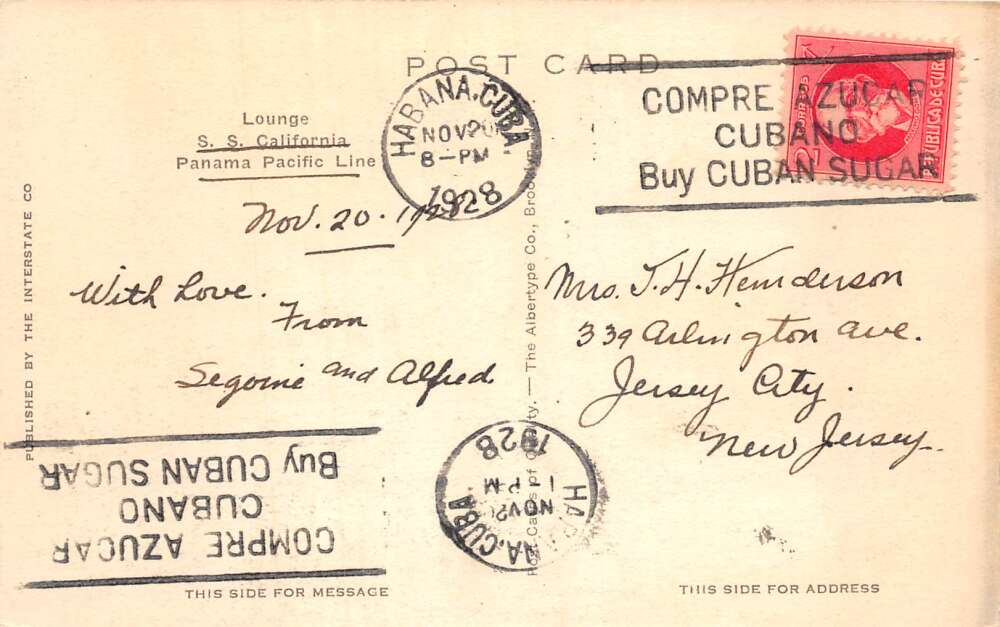 POST CARD
Lounge
S. S. California
Panama Pacific Line
HABANA, CUBA
NOV 20
8-PM
1928
COMPRE AZUCAR
CUBANO
Buy CUBAN SUGAR
CORREOS
REPUBLICA DE CUBA
2
Nov. 20. 1928
With Love.
From
and Alfred
Mrs. J. H. Henderson
339 Arlington Ave.
Jersey City.
New Jersey.
PUBLISHED BY THE INTERSTATE CO
Post Cards of Quality. — The Albertype Co., Brooklyn
COMPRE AZUCAR
CUBANO
Buy CUBAN SUGAR
CUBA
NOV 20
1-PM
1928
THIS SIDE FOR MESSAGE
THIS SIDE FOR ADDRESS